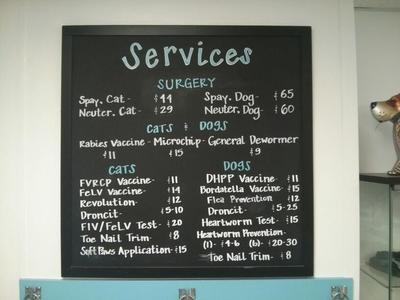 Services
SURGERY
Spay. Cat - $44 Spay. Dog - $65
Neuter. Cat - $29 Neuter. Dog - $60
CATS & DOGS
Rabies Vaccine - Microchip - General Dewormer
$11 $15 $9
CATS
FVRCP Vaccine - $11
FeLV Vaccine - $14
Revolution - $12
Droncit - $5-10
FIV/FeLV Test - $20
Toe Nail Trim - $8
Soft Paws Application - $15
DOGS
DHPP Vaccine - $11
Bordatella Vaccine - $15
Flea Prevention $12
Droncit - $5-25
Heartworm Test - $15
Heartworm Prevention -
(1) - $4-6 (6) - $20-30
Toe Nail Trim - $8